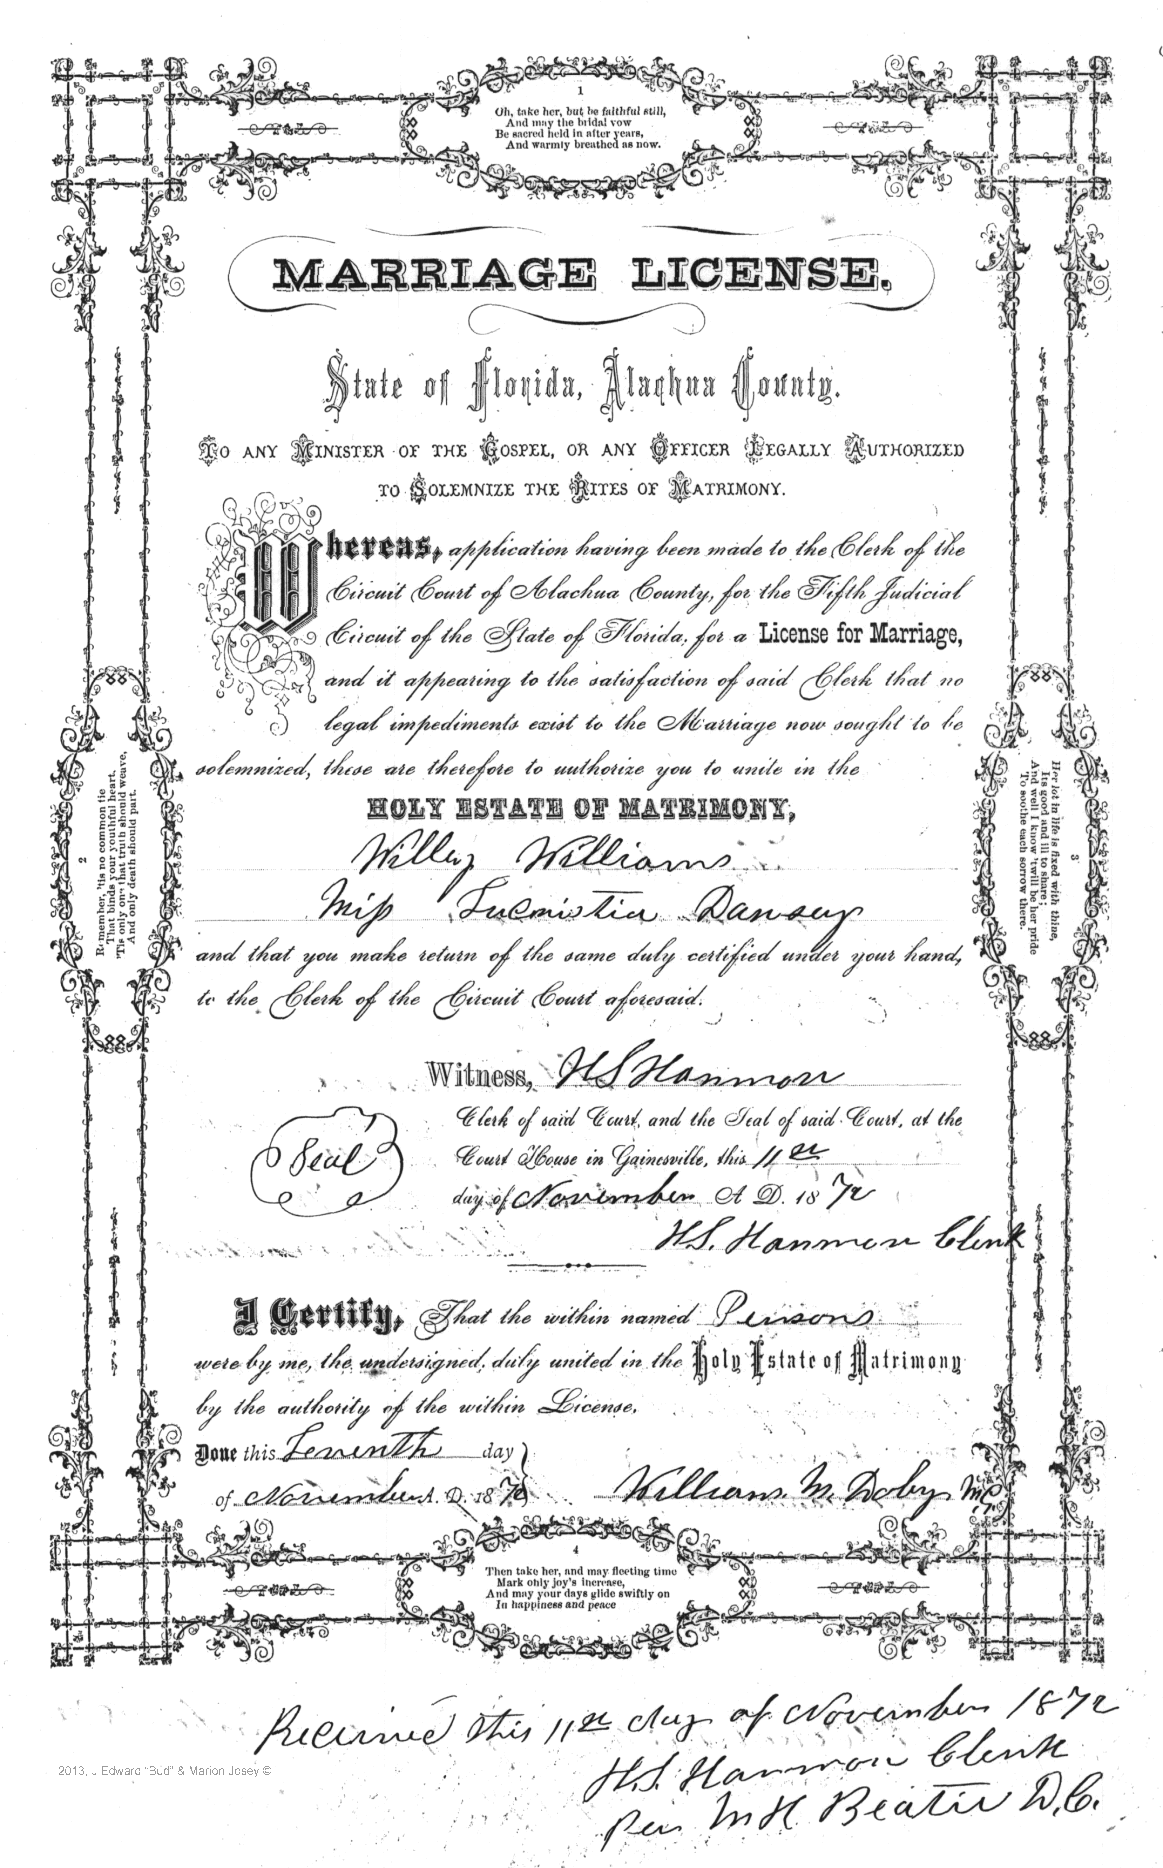 1
Oh, take her, but be faithful still,
And may the bridal vow
Be sacred held in after years,
And warmly breathed as now.
MARRIAGE LICENSE.
State of Florida, Alachua County.
TO ANY MINISTER OF THE GOSPEL, OR ANY OFFICER LEGALLY AUTHORIZED
TO SOLEMNIZE THE RITES OF MATRIMONY.
Whereas, application having been made to the Clerk of the
Circuit Court of Alachua County, for the Fifth Judicial
Circuit of the State of Florida, for a License for Marriage,
and it appearing to the satisfaction of said Clerk that no
legal impediments exist to the Marriage now sought to be
solemnized, these are therefore to authorize you to unite in the
HOLY ESTATE OF MATRIMONY,
Willey Williams
Miss Lucnistia Dansey
and that you make return of the same duly certified under your hand,
to the Clerk of the Circuit Court aforesaid.
2
Remember, 'tis no common tie
That binds your youthful heart.
'Tis only on that truth should weave,
And only death should part.
3
Her lot in life is fixed with thine,
Its good and ill to share;
And well I know 'twill be her pride
To soothe each sorrow there.
Witness, H S Hanmon
Clerk of said Court, and the Seal of said Court, at the
Seal
Court House in Gainesville, this 11th
day of November A D. 1872
H.S. Hanmon Clerk
I Certify, That the within named Persons
were by me, the undersigned, duly united in the Holy Estate of Matrimony
by the authority of the within License.
Done this Seventh day
of November A. D. 1872 William M. Doby MG
4
Then take her, and may fleeting time
Mark only joy's increase,
And may your days glide swiftly on
In happiness and peace
Received this 11th day of November 1872
H.S. Hanmon Clerk
Per M H Beatie D.C.
2013, J Edward "Bud" & Marion Josey ©